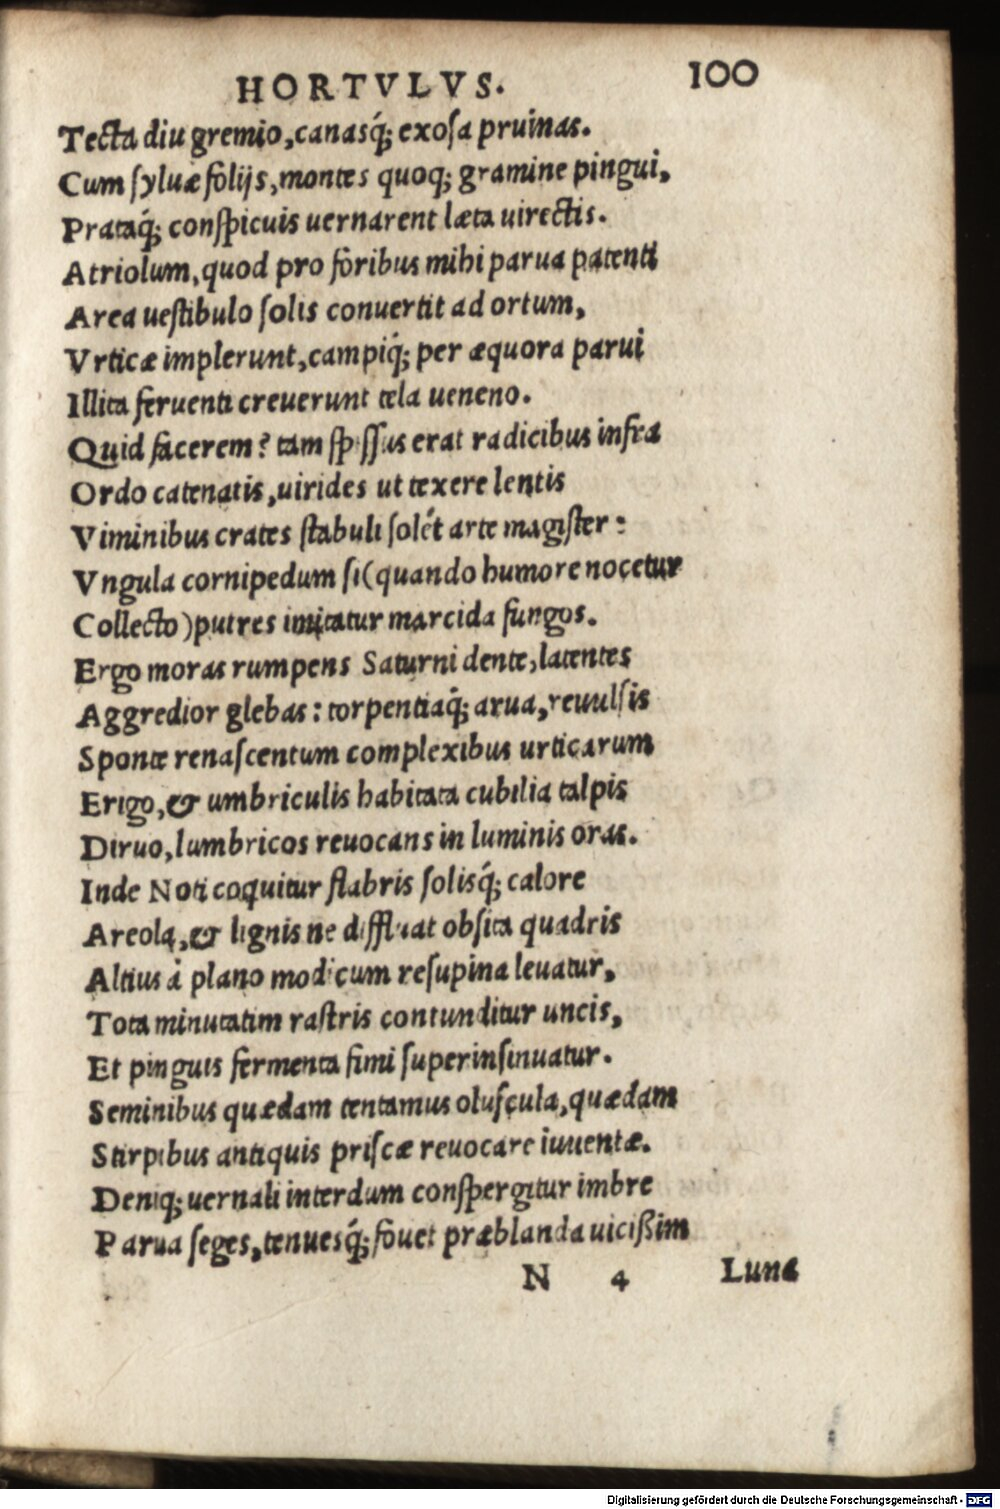 HORTVLVS. 100
Tecta diu gremio, canasq́; exoſa pruinas.
Cum ſyluæ folijs, montes quoq; gramine pingui,
Prataq́; conſpicuis uernarent læta uirectis.
Atriolum, quod pro foribus mihi parua patenti
Area ueſtibulo ſolis conuertit ad ortum,
Vrticæ implerunt, campiq́; per æquora parui
Illita feruenti creuerunt tela ueneno.
Quid facerem? tam ſpiſſus erat radicibus infra
Ordo catenatis, uirides ut texere lentis
Viminibus crates ſtabuli ſolét arte magiſter:
Vngula cornipedum ſi (quando humore nocetur
Collecto) putres imitatur marcida fungos.
Ergo moras rumpens Saturni dente, latentes
Aggredior glebas: torpentiaq́; arua, reuulſis
Sponte renaſcentum complexibus urticarum
Erigo, & umbriculis habitata cubilia talpis
Diruo, lumbricos reuocans in luminis oras.
Inde Noti coquitur flabris ſolisq́; calore
Areola, & lignis ne diffluat obſita quadris
Altius à plano modicum reſupina leuatur,
Tota minutatim raſtris contunditur uncis,
Et pinguis fermenta fimi ſuperinſinuatur.
Seminibus quædam tentamus oluſcula, quædam
Stirpibus antiquis priſcæ reuocare iuuentæ.
Deniq; uernali interdum conſpergitur imbre
Parua ſeges, tenuesq́; fouet præblanda uicißim
N 4 Lunæ
Digitalisierung gefördert durch die Deutsche Forschungsgemeinschaft - DFG